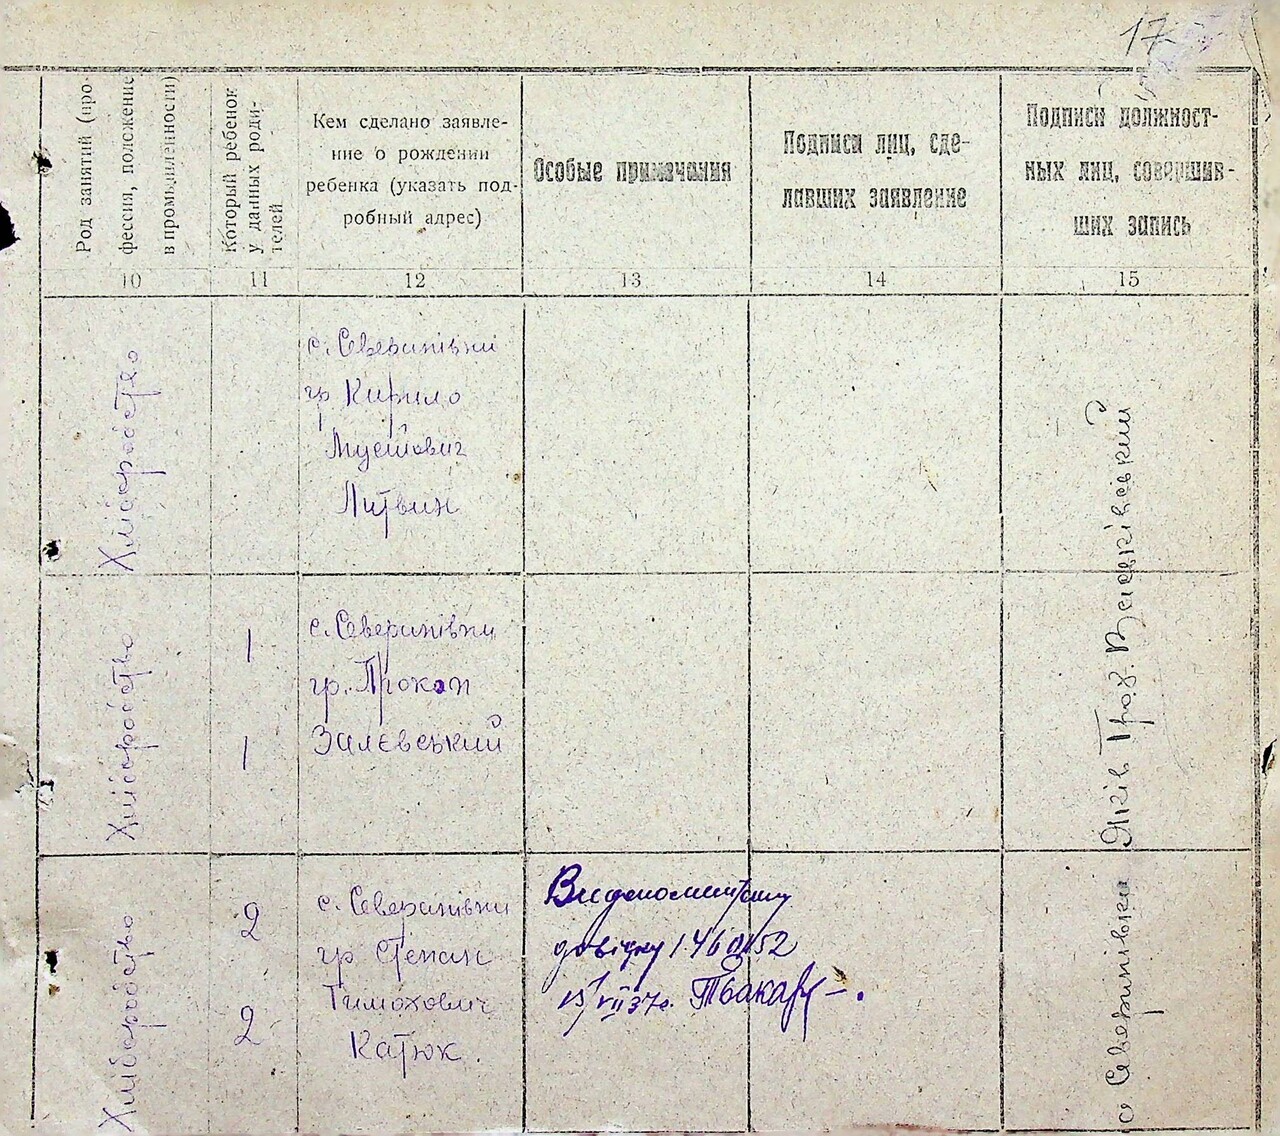 17
Род занятий (про-
фессия, положение
в промышленности)
Который ребенок
у данных роди-
телей
Кем сделано заявле-
ние о рождении
ребенка (указать под-
робный адрес)
Особые примечания
Подписи лиц, сде-
лавших заявление
Подписи должност-
ных лиц, совершив-
ших запись
10
11
12
13
14
15
Хліборобство
с. Северинівки
гр Кирило
Литвин
Хліборобство
1
1
с. Северинівки
гр. Прокоп
Залєвський
Хліборобство
2
2
с. Северинівки
гр Степан
Тимохович
Катюк.
довідку
15/VII 37г.
Яків
с Северинівка